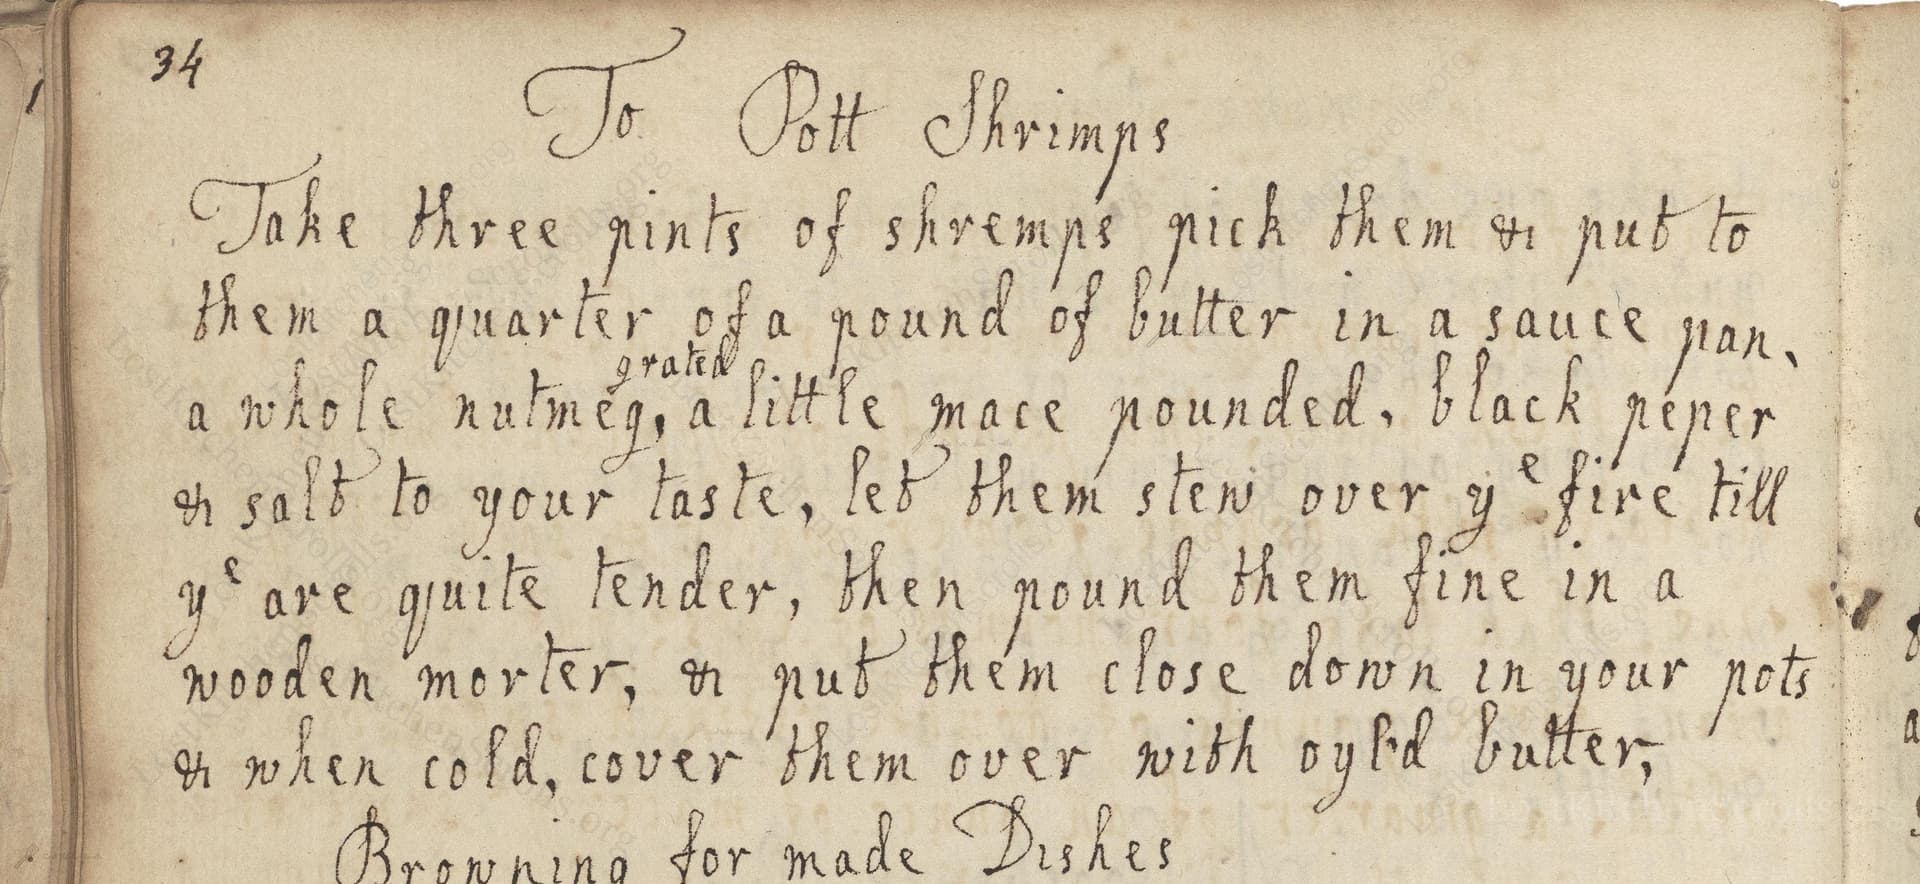 34
To Pott Shrimps
Take three pints of shremps pick them & put to
them a quarter of a pound of butter in a sauce pan,
grated
a whole nutmeg, a little mace pounded, black peper
& salt to your taste, let them stew over yᵉ fire till
yᵉ are quite tender, then pound them fine in a
wooden morter, & put them close down in your pots
& when cold, cover them over with oyl'd butter,
Browning for made Dishes